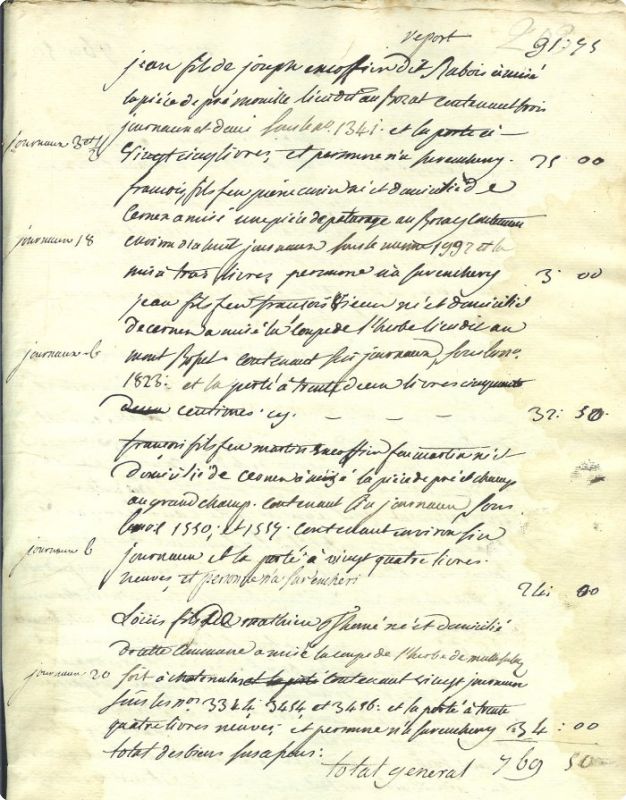 report 91:75
jean fils de joseph encoffrin dit Rabois a misé
la pièce de pré mouille lieu dit au Borat contenant trois
journaux et demi sous le no. 1341. et la porté à
journaux 3 et ½
vingt cinq livres, et personne n'a surenchery. 25 00
françois fils feu pierre né et domicilié de
Cernex a misé une pièce de paturage au contenant
journaux 18
environ dix huit journaux sous le numero 1997 et la
mis à trois livres personne n'a surenchery 3 00
jean fils feu françois né et domicilié
de cernex a misé la coupe de l'herbe lieu dit au
journaux 6
mont contenant six journaux, sous le no.
1828: et la porté à trente deux livres cinquante
centimes. cy. — — — — 32: 50
françois fils feu martin encoffrin feu martin né et
domicilié de cernex a misé la pièce de pré et champ
au grand champ. contenant journaux, sous
les nos 1550; et 1557. contenant environ six
journaux 6
journaux et la porté à vingt quatre livres
neuves, et personne n'a surenchéri
24 00
Loüis fils De mathieu né et domicilié
commune a misé la coupe de l'herbe de
journaux 20
soit à et la porté contenant vingt journaux
sous les nos 3344: 3454 et 3496: et la porté à trente
quatre livres neuves, et personne n'a surenchery 34:00
total des biens
total general 769 50